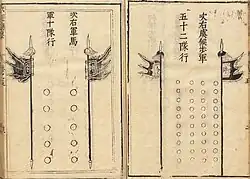 次右虞候步軍
五十二隊行
次右軍馬
軍十隊行